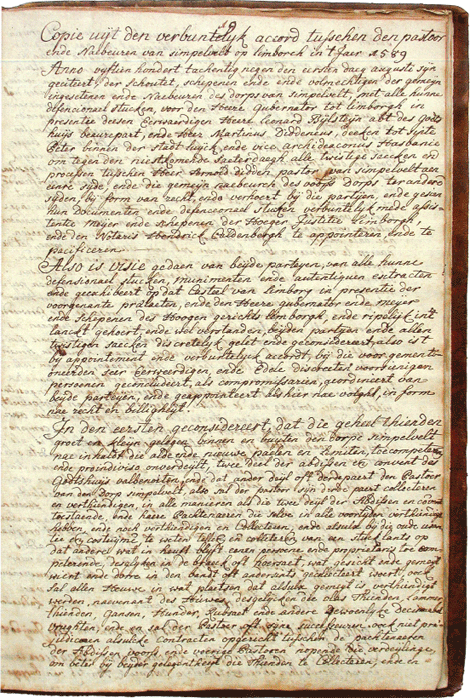 Copie uijt den verbuntelijk accord tusschen den pastoor
ende Nabeuren van simpelvelt en limborch in't Jaer 1589
Anno vijftien hondert tachentig negen den eersten daeg augusti sijn
geciteert, der schoutet, schepenen ende volmechtigen der gemeijn
ingesetene ende Naebueren des dorps van simpelvelt, met alle hunne
defensionael stucken, voor den Heere Gubernator tot limborgh in
presentie deesen Eerwaerdigen Heere Leonard Bijlsteijn abt des godts
huijs beaurepart, ende Heer Martinus Diddeneus, deeken tot sinte
Peter binnen der stadt luijck ende vice archideaconus Hasbanie
om tegen den niestkomende saeterdaegh alle twestige saecken en
processen tusschen Heer Arnold didden pastor van simpelvelt aen
eenre sijde, ende die gemeijn naebeurch des voors dorps ter andere
sijden, bij form van recht, ende verhoert bij die partijen, ende gesien
hun documenten ende defensionael stucken verbuntelijk mede assis
tentie meijer ende schepenen der Hooger Justitie limborgh,
ende den Notaris Hendrick Caldenbergh te appointeren ende te
pacificeren
Also is visie gedaen van beijde parteijen, van alle hunne
defensionael stucken, munimenten ende autentiquen extracten
ende geexhibeert op dat Casteel van limborg in presentie der
voorgenante prelaeten, ende den Heere gubernator ende meijer
ende schepenen des Hoogen gerichts limborgh, ende ripelijck int
lanck gehoert, ende wel verstanden, beijden partijen ende allen
twistigen saecken discretelijk gelet ende geconsidereert, also is't
bij appointement ende verbuntelijck accordt, bij die voors gementi-
oneerden seer Eerweerdigen, ende Edele discreten voorsienigen
persoonen geconcludeert, als compromissarien, geordineert van
beijde parteijen, ende geappointeert als hier nae volght, in form
nae recht en billighlijt
In den eersten geconsidereert, dat die geheel thienden
groet en kleijn gelegen binnen en buijten den dorpe simpelvelt
nae inhalt die alde ende nieuwe paelen en limiten, toecompeteren
ende proindiviso onverdeijlt, twee deel der abdissen en convent des
Godtshuijs valbenoiten, ende dat ander deijl oft derdepaert den Pastoor
van den dorp simpelvelt, also sal der pastor sijn derde paert collecteren
en verthiendigen, in alle manieren als die twee deijl der Abdissen en convent
toestaende, ende haere Pachtenaeren die selve in alle voortijden verthiendight
hebben ende noch verthiendigen en Collecteren, ende alsulx bij die oude usan-
tie en costuijme te weten tellen en collecteren van een stuk lants op
dat ander, wat in keuff blijft eenen persoene ende proprietaris toe com-
peterende, desgelijken in de breuck oft hoernaet, wat gesicht ende gemeijt
wiert ende dorre in den bandt oft andersints gecollecteert woert, ende
sal allen Heuwe in wat plaetsen dat alsulx gemeijt is, verthiendight
werden, navenant des Thiendes, desgelijken die vlas Thienden, Lammer
thienden, Gansen, Hunder, Rubsaet ende andere gewoenlijke decimable
vruchten, ende en sal der Pastoor oft sijne successeuren, oock niet pre-
judiceren alsulcke contracten opgericht tusschen de pachtenaeren
der Abdissen voors, ende voorige Pastooren, nopende die verdeijlinge,
om beter bij beijder gelegentheijt die Thienden te Collecteren, ende en